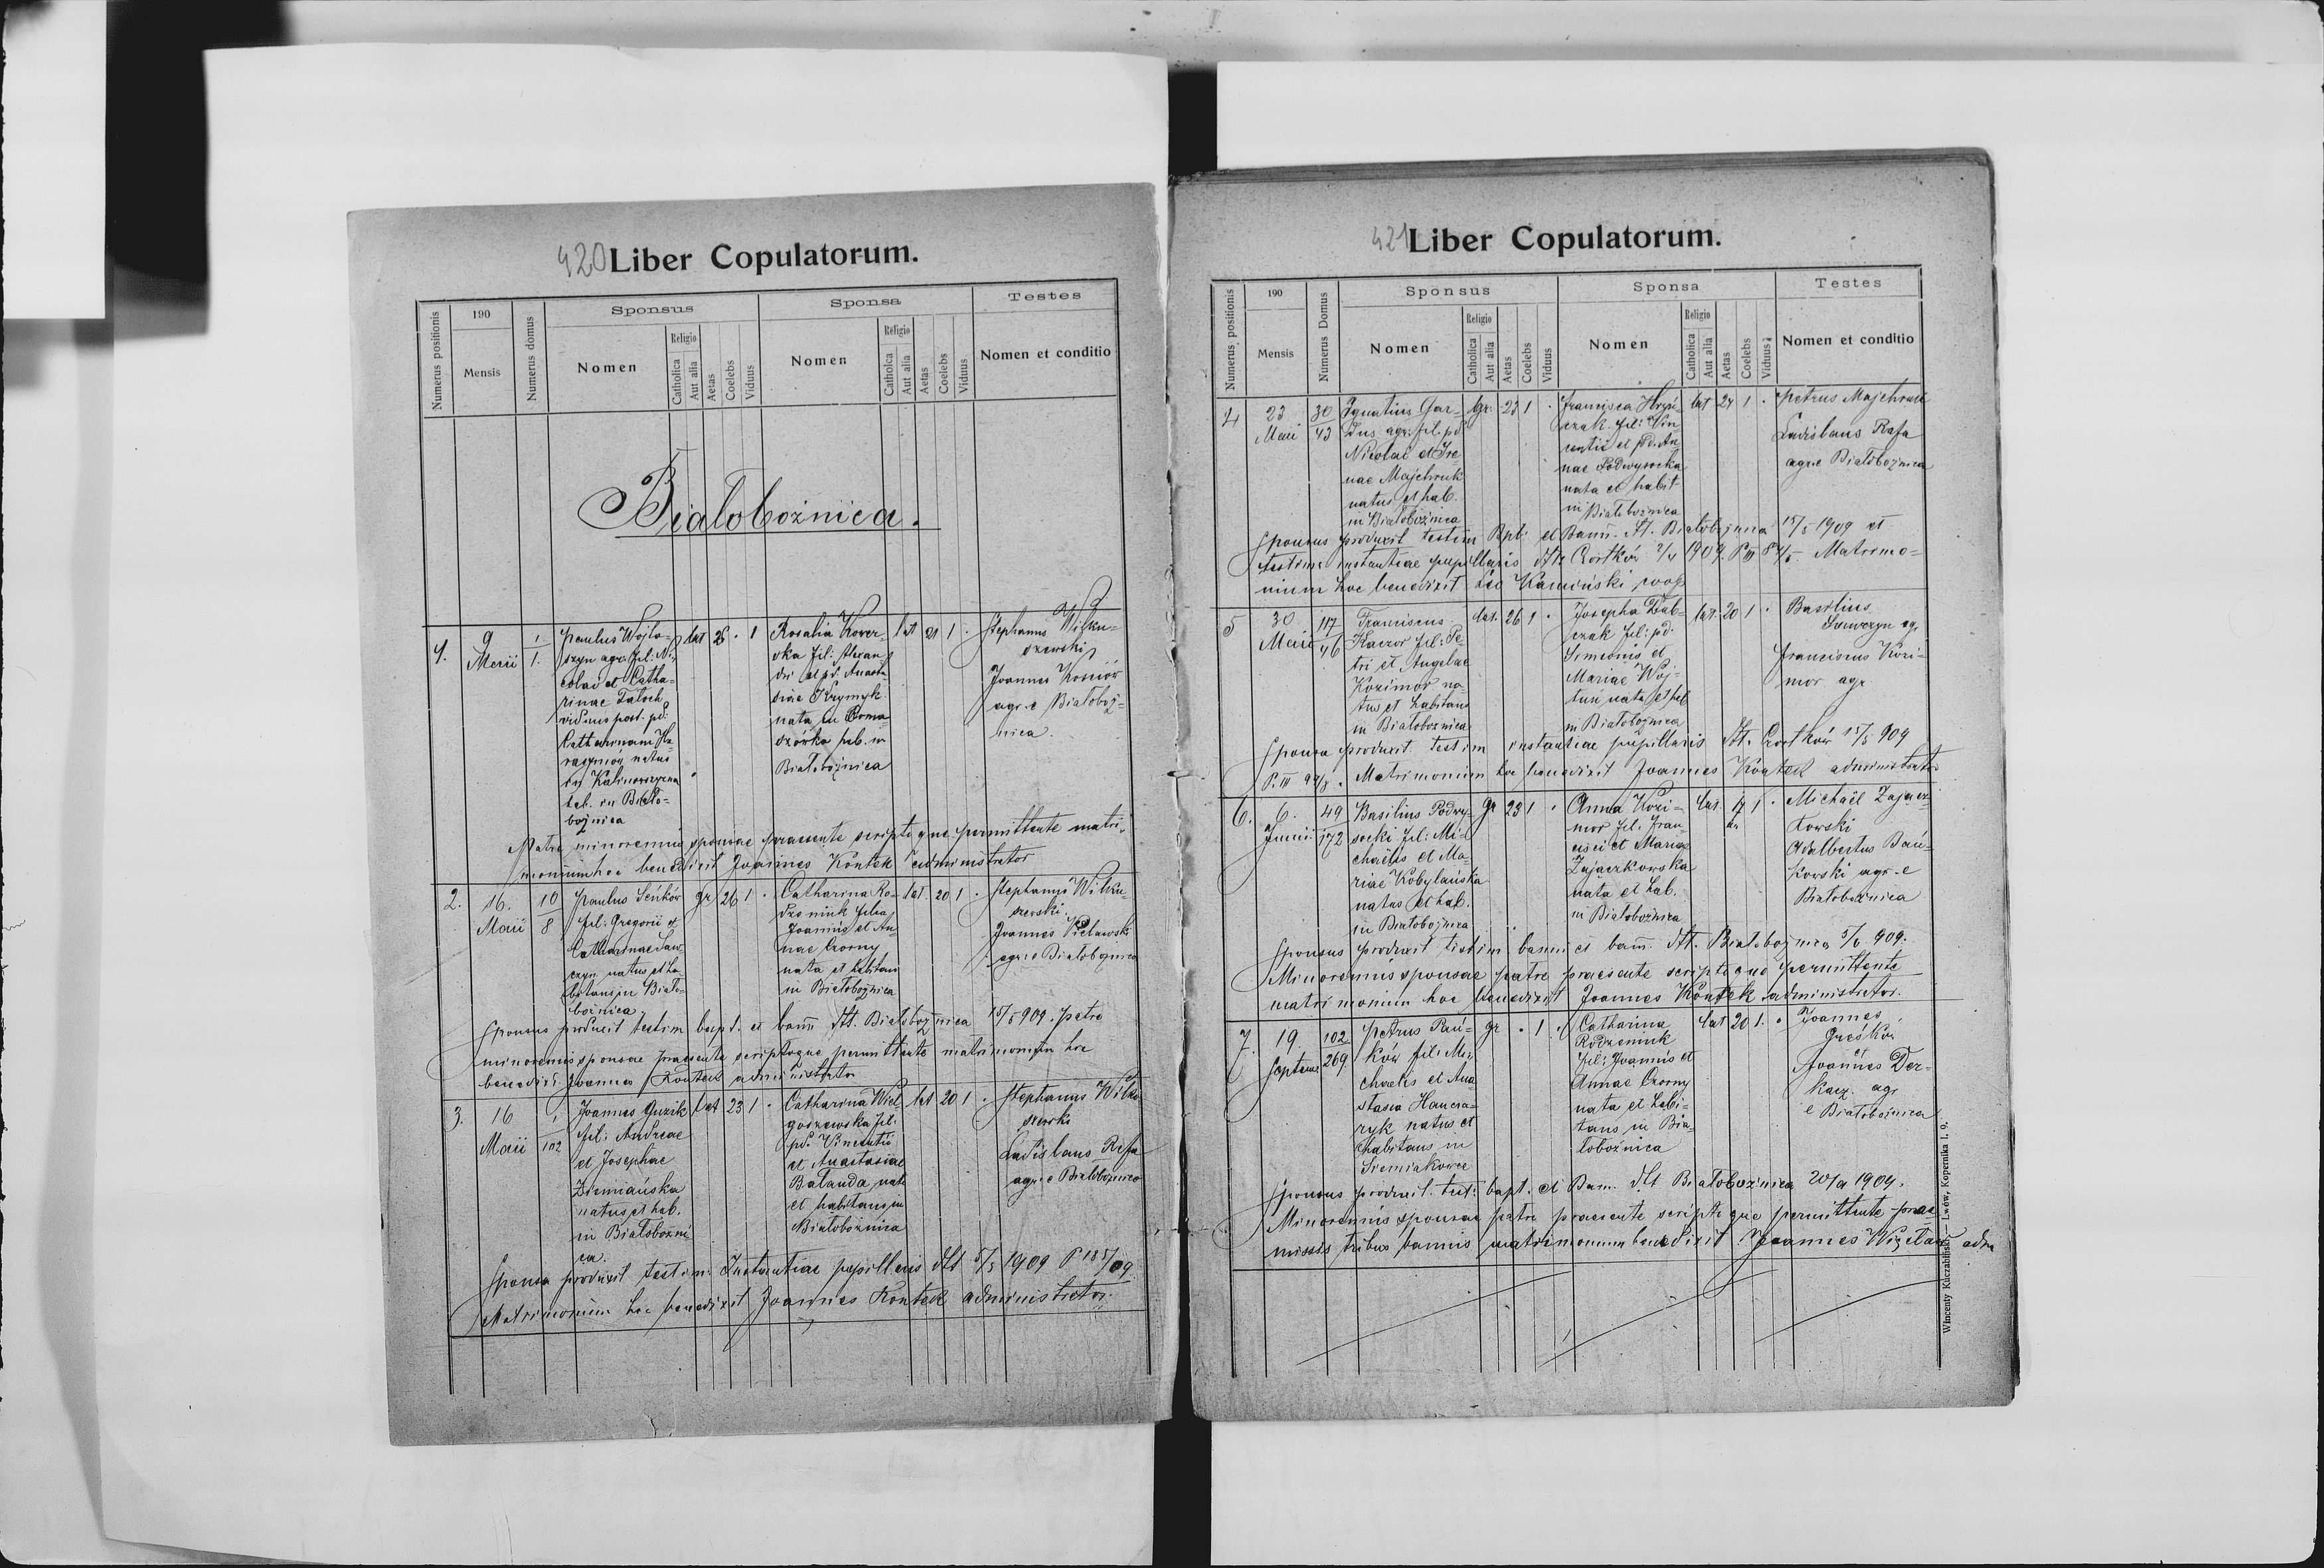 420 Liber Copulatorum.
Numerus positionis
190
Mensis
Numerus domus
Sponsus
Nomen
Religio
Catholica
Aut alia
Aetas
Coelebs
Viduus
Sponsa
Nomen
Religio
Catholica
Aut alia
Aetas
Coelebs
Viduus
Testes
Nomen et conditio
Białobożnica.
1.
9
Maii
1
1.
Paulus Wojto-
szyn agr. fil: Ni-
colai et Catha-
rinae
viduus post. pd.
Catharinam Ha-
rasymów natus
in Kalinowszczyzna
hab. in Biało-
bożnica
lat 26 . 1
Rosalia Kower-
ska fil: Alexan
dri et pd. Anasta
siae Krzymyk
nata in Roma-
szówka hab. in
Białobożnica
lat 21 1 .
Stephanus Wilku-
szewski
Joannes Kościów
agr. e Białoboż-
nica.
Matre minorennis sponsae praesente scriptoque permittente matri-
monium hoc benedixit Joannes Kontek administrator
2.
16.
Maii
10
8
Paulus Seńków
fil: Gregorii et
Catharinae Saw-
czyn natus et ha-
bitans in Biało-
bożnica
gr 26 1 .
Catharina Ro-
dzoniuk filia
Joannis et An-
nae Czorny
nata et habitans
in Białobożnica
lat. 20 1 .
Stephanus Wilku-
szewski
Joannes Wiclawski
agr. e Białobożnica
Sponsus produxit testim bapt. et bann dtt. Białobożnica 15/5 909. Patre
minorennis sponsae praesente scriptoque permittente matrimonium hoc
benedixit Joannes Kontek administrator
3.
16
Maii
1
102
Joannes Guzik
fil: Andreae
et Josephae
Ziemiańska
natus et hab.
in Białobożni
ca.
lat 23 1 .
Catharina Wiel-
goszewska fil.
pd. Vincentii
et Anastasiae
Bałanda nata
et habitans in
Białobożnica
lat 20 1 .
Stephanus Wilku
szewski
Ladislaus Rafa
agr. e Białobożnica
Sponsa produxit testim. Instantiae pupillaris dtt 5/5 1909 P 185/09
Matrimonium hoc benedixit Joannes Kontek administrator.
421 Liber Copulatorum.
Numerus positionis
190
Mensis
Numerus Domus
Sponsus
Nomen
Religio
Catholica
Aut alia
Aetas
Coelebs
Viduus
Sponsa
Nomen
Religio
Catholica
Aut alia
Aetas
Coelebs
Viduus
Testes
Nomen et conditio
4
23
Maii
30
43
Ignatius Gar-
dus agr. fil. pd
Nicolai et Ire-
nae Majchruk
natus et hab.
in Białobożnica
gr. 23 1 .
Francisca Hryń-
czak fil: Vin
centii et pd. An
nae Podwysocka
nata et habit-
in Białobożnica
lat 24 1 .
Petrus Majchruk
Ladislaus Rafa
agr. e Białobożnica
Sponsus produxit testim Bpt. et Bann. dt. Białobożnica 15/5 1909 et
testim instantiae pupillaris dtt Czortków 1909. P III Matrimo-
nium hoc benedixit Leo Kamiński coop
5
30
Maii
117
46
Franciscus
Kaczor fil: Pe-
tri et Angelae
Kozimor na-
tus et habitans
in Białobożnica
lat. 26 1 .
Josepha Bab-
czak fil: pd.
Simeonis et
Mariae Woj-
tuń nata et hab
in Białobożnica
lat. 20 1 .
Basilius
Sawczyn agr
Franciscus Kozi-
mor agr
Sponsa produxit testim instantiae pupillaris dtt. Czortków 15/5 909
P. III Matrimonium hoc benedixit Joannes Kontek administrator
6.
6.
Junii
49
172
Basilius Podwy-
socki fil: Mi-
chaëlis et Ma-
riae Kobylańska
natus et hab.
in Białobożnica
gr 23 1 .
Anna Kozi-
mor fil: Fran-
cisci et Mariae
Zajaczkowska
nata et hab.
in Białobożnica
lat. 17 1 .
Michaël Zajacz-
kowski
Adalbertus Bań-
kowski agr. e
Białobożnica
Sponsus produxit testim. et bann. dtt. Białobożnica 5/6 909.
Minorennis sponsae patre praesente scriptoque permittente
matrimonium hoc benedixit Joannes Kontek administrator.
7.
19.
Septemb
102
269
Petrus Pań-
ków fil: Mi-
chaelis et Ana
stasia
natus et
habitans in
Siemiakowce
gr . 1 .
Catharina
Rodzeniuk
fil: Joannis et
Annae Czorny
nata et habi-
tans in Bia-
łobożnica
lat 20 1. .
Joannes
Gréśków
et
Joannes Der-
kacz. agr
e Białobożnica
Sponsus produxit. test: bapt. et Bann. dtt Białobożnica 1909.
Minorennis sponsae patre praesente scriptoque permittente prae-
missis tribus bannis matrimonium benedixit Joannes adm
Wincenty Kuczabiński — Lwów, Kopernika l. 9.